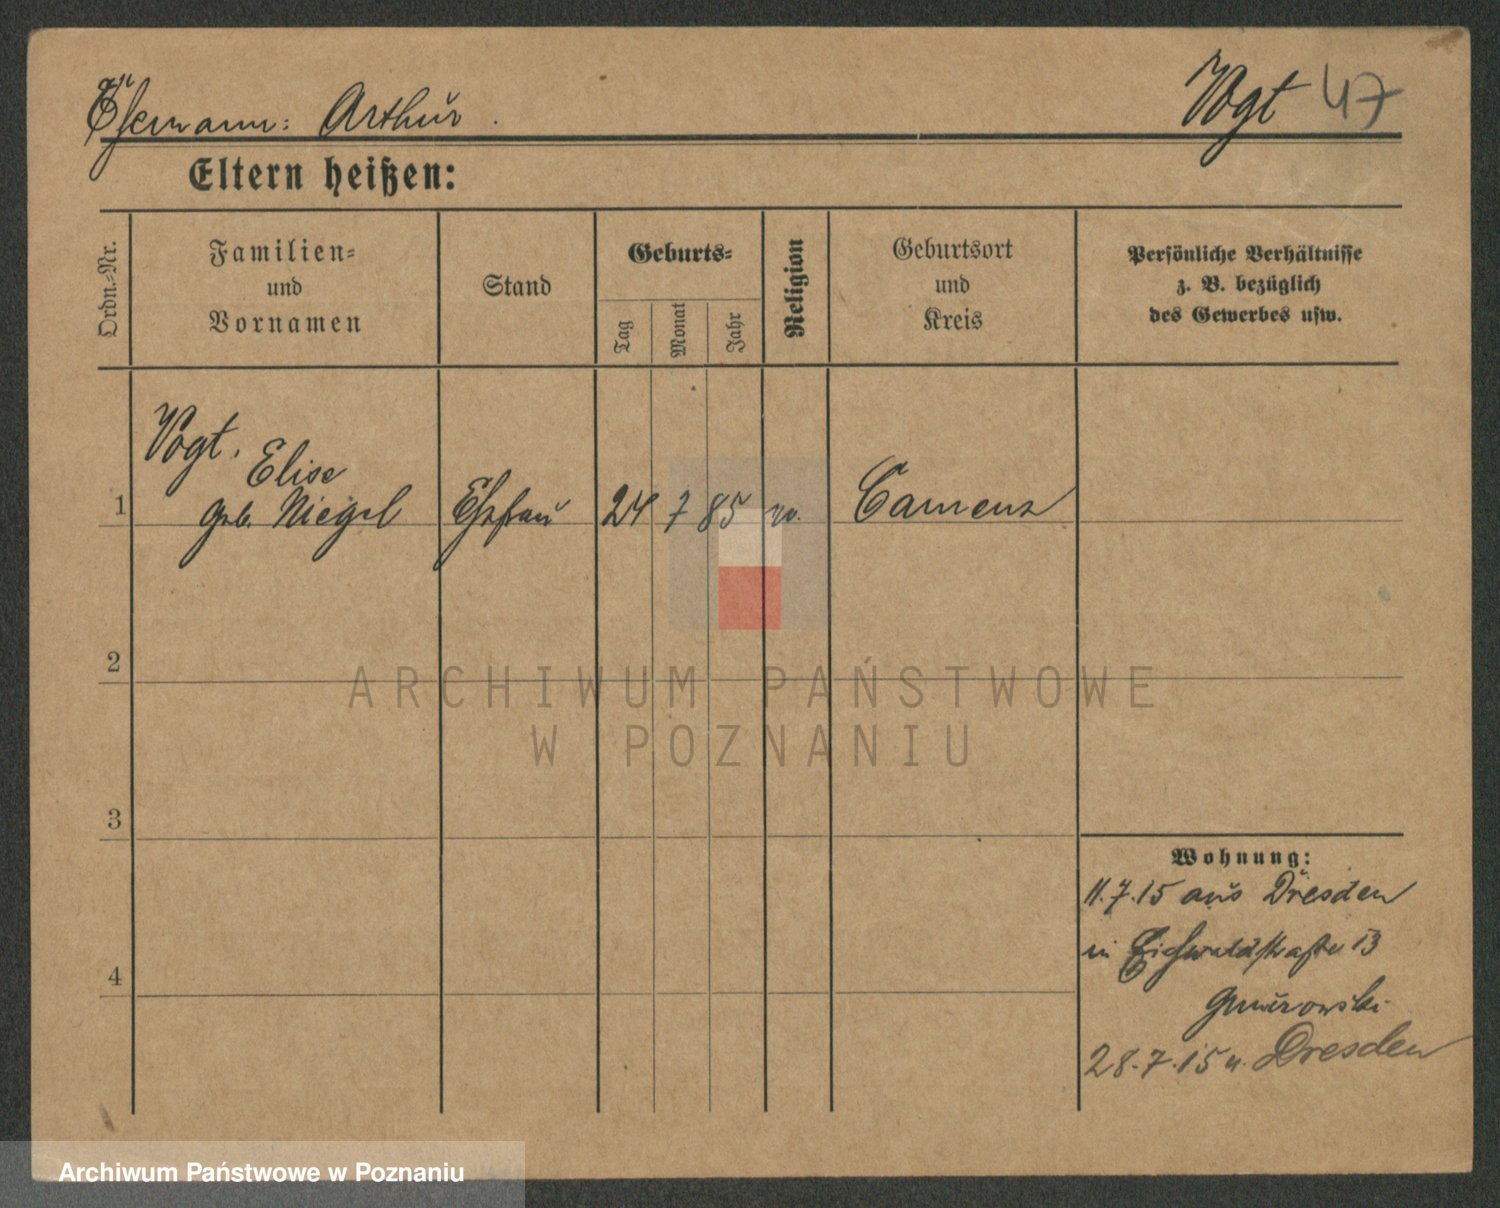 Ehemann: Arthur.
Vogt 47
Eltern heißen:
Ordn.-Nr.
Familien-
und
Vornamen
Stand
Geburts-
Tag
Monat
Jahr
Religion
Geburtsort
und
Kreis
Persönliche Verhältnisse
z. B. bezüglich
des Gewerbes usw.
Vogt.
Elise
1 geb. Niegel Ehefrau 24 7 85 Camenz
2
ARCHIWUM PAŃSTWOWE
W POZNANIU
3
Wohnung:
11.7.15 aus Dresden
in Eichwaldstraße 13
4
28.7.15 n. Dresden
Archiwum Państwowe w Poznaniu